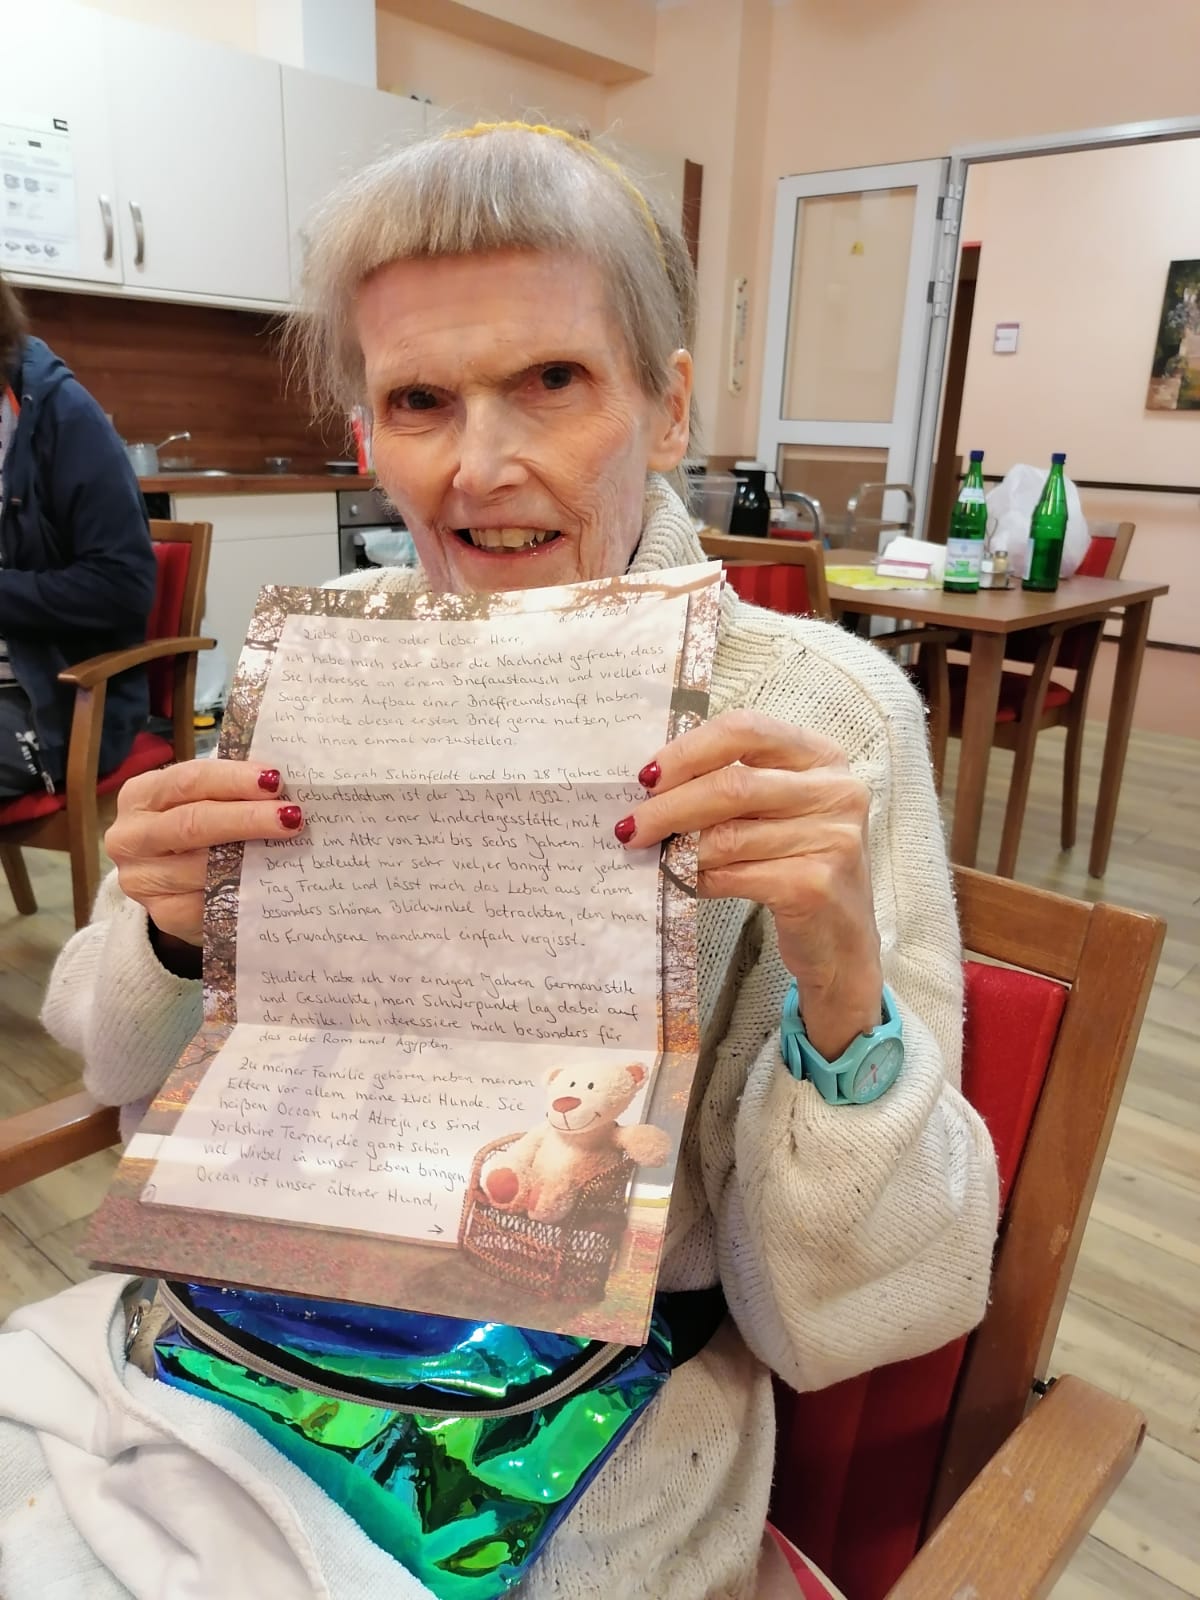 6. März 2021
Liebe Dame oder lieber Herr,
ich habe mich sehr über die Nachricht gefreut, dass
Sie Interesse an einem Briefaustausch und vielleicht
sogar dem Aufbau einer Brieffreundschaft haben.
Ich möchte diesen ersten Brief gerne nutzen, um
mich Ihnen einmal vorzustellen.
heiße Sarah Schönfeldt und bin 28 Jahre alt.
Geburtsdatum ist der 23. April 1992. Ich arbei
in einer Kindertagesstätte, mit
Kindern im Alter von zwei bis sechs Jahren. Mein
Beruf bedeutet mir sehr viel, er bringt mir jeden
Tag Freude und lässt mich das Leben aus einem
besonders schönen Blickwinkel betrachten, den man
als Erwachsene manchmal einfach vergisst.
Studiert habe ich vor einigen Jahren Germanistik
und Geschichte, mein Schwerpunkt lag dabei auf
der Antike. Ich interessiere mich besonders für
das alte Rom und Ägypten.
Zu meiner Familie gehören neben meinen
Eltern vor allem meine zwei Hunde. Sie
heißen Ocean und Atreju, es sind
Yorkshire Terrier, die ganz schön
viel Wirbel in unser Leben bringen.
Ocean ist unser älterer Hund,
→